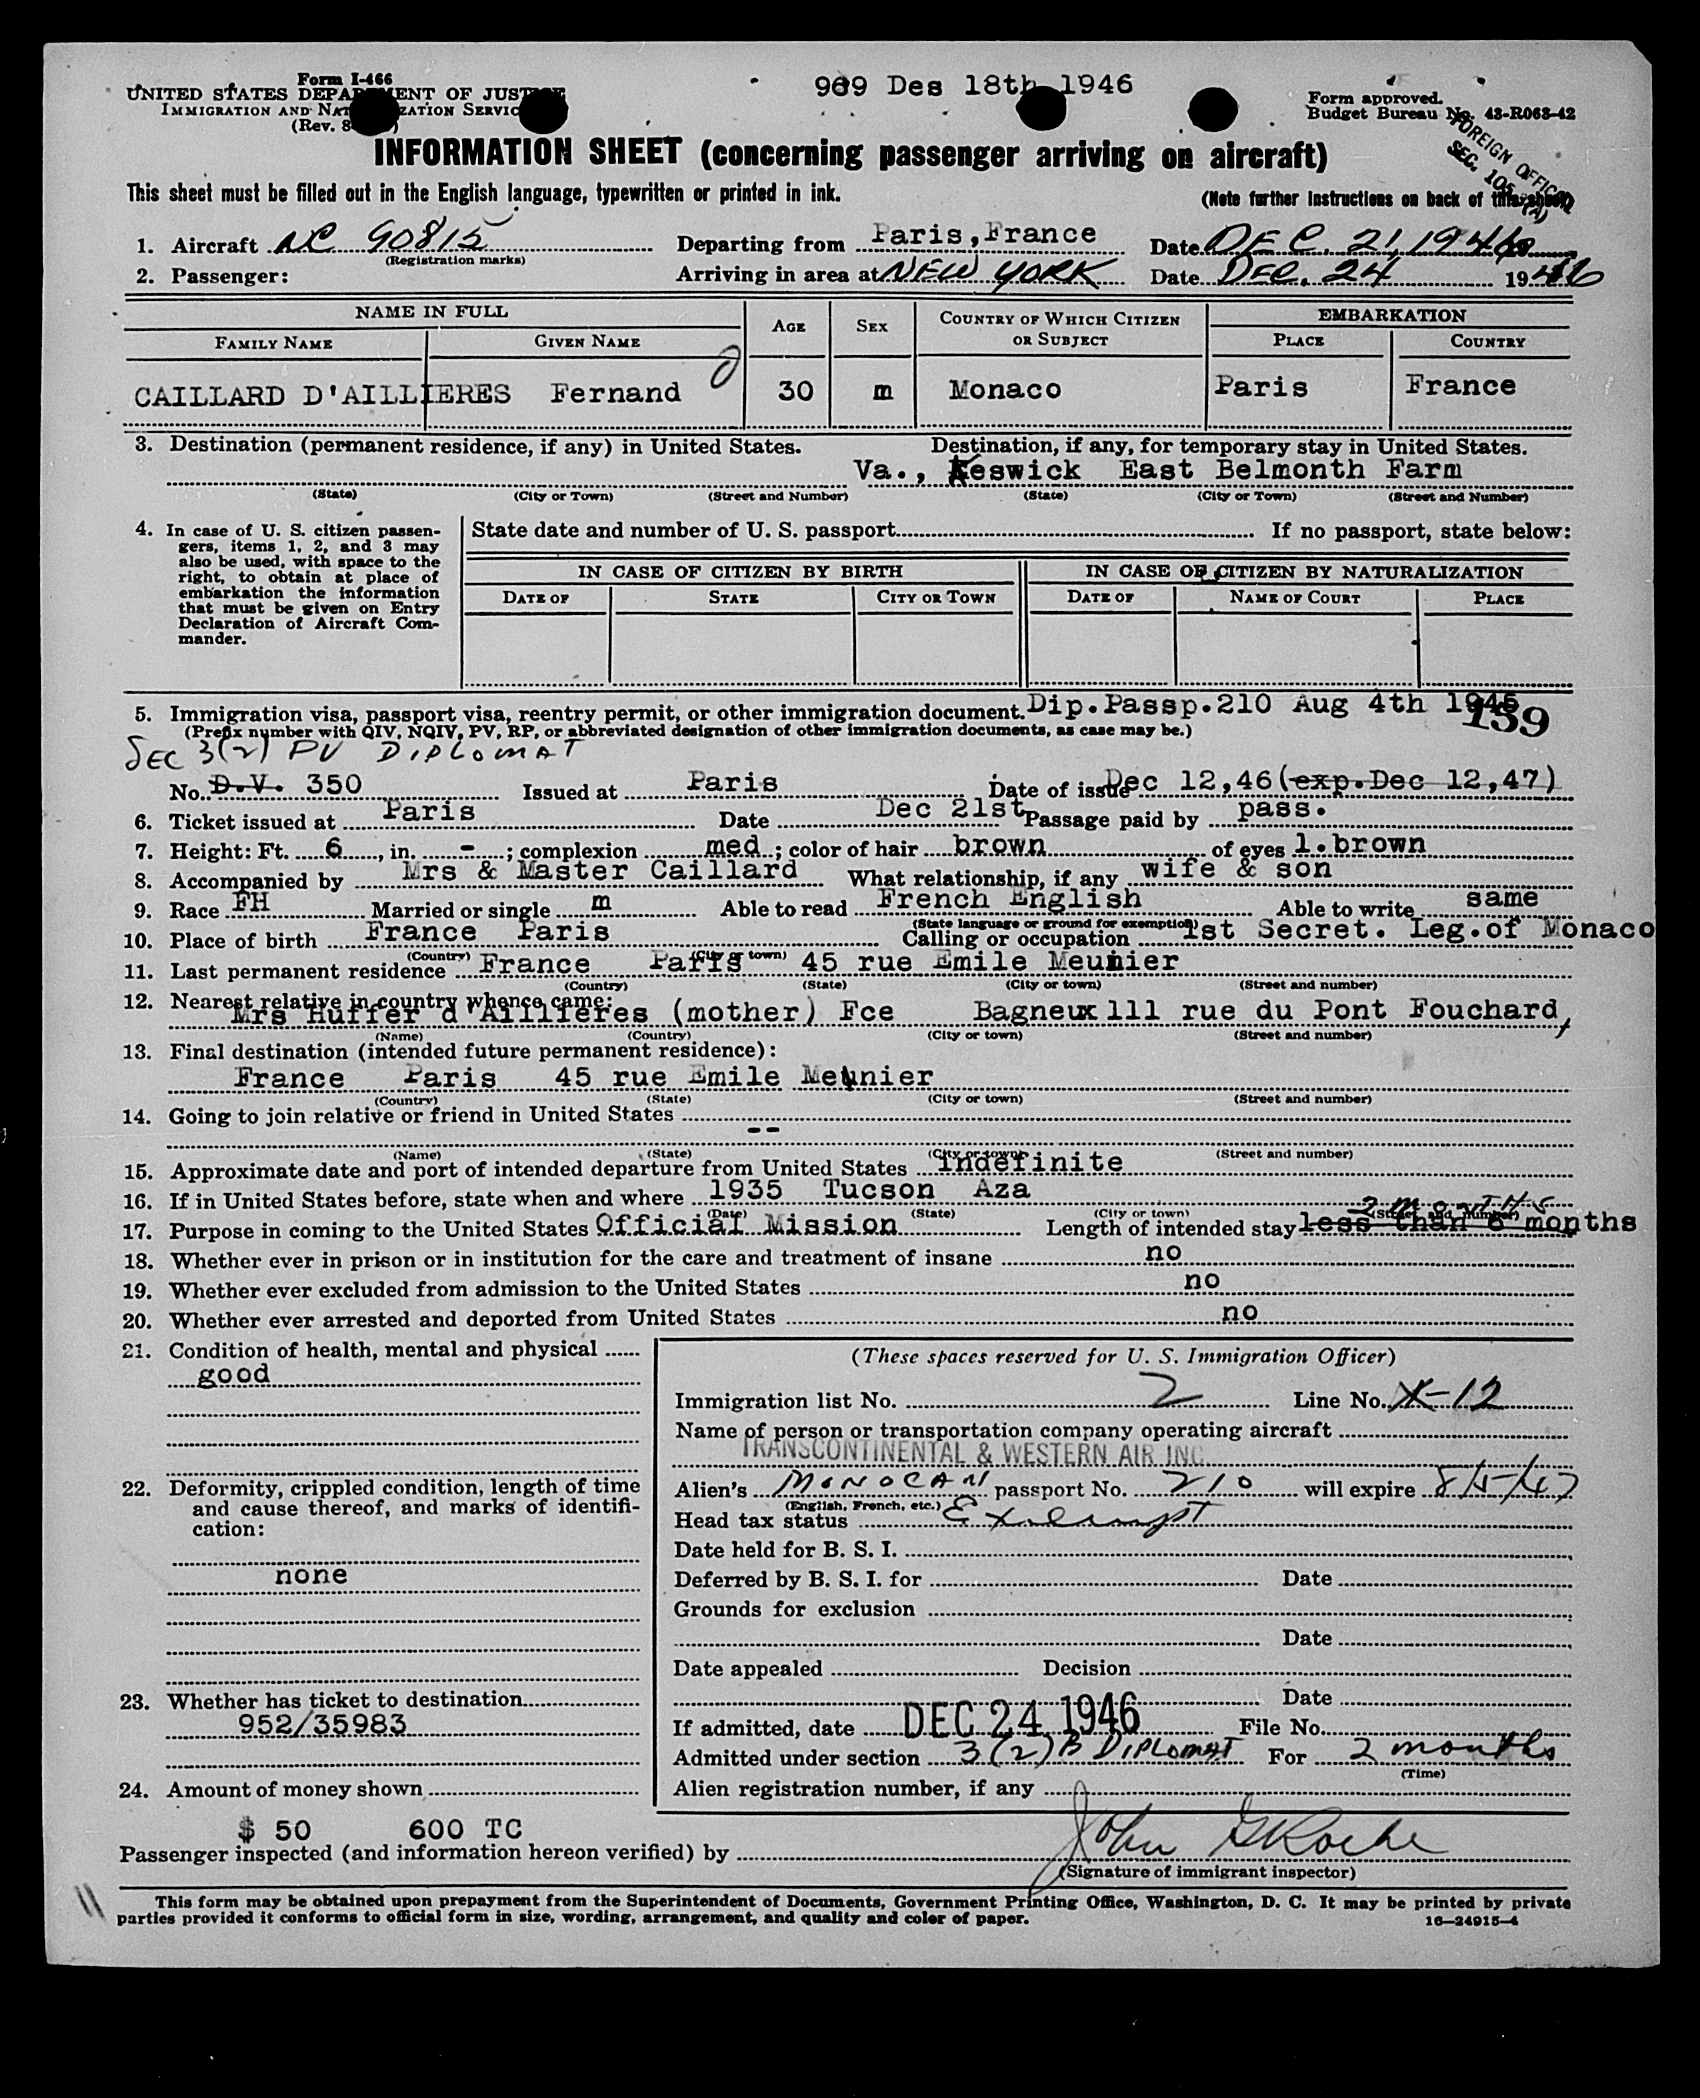 Form I-466
969 Des 18th 1946
UNITED STATES DEPARTMENT OF JUSTICE
IMMIGRATION AND NATURALIZATION SERVICE
(Rev. 8
Form approved.
Budget Bureau No. 43-R063-42
FOREIGN OFFICIAL
SEC. 105 (A)
INFORMATION SHEET (concerning passenger arriving on aircraft)
This sheet must be filled out in the English language, typewritten or printed in ink.
(Note further instructions on back of this sheet)
1. Aircraft NC 90815 Departing from Paris, France Date DEC. 21, 1946
(Registration marks)
2. Passenger: Arriving in area at NEW YORK Date DEC. 24 1946
NAME IN FULL AGE SEX COUNTRY OF WHICH CITIZEN OR SUBJECT EMBARKATION
FAMILY NAME GIVEN NAME PLACE COUNTRY
CAILLARD D'AILLIERES Fernand 30 m Monaco Paris France
3. Destination (permanent residence, if any) in United States. Destination, if any, for temporary stay in United States.
Va., Keswick East Belmonth Farm
(State) (City or Town) (Street and Number) (State) (City or Town) (Street and Number)
4. In case of U. S. citizen passengers, items 1, 2, and 3 may
also be used, with space to the
right, to obtain at place of
embarkation the information
that must be given on Entry
Declaration of Aircraft Commander.
State date and number of U. S. passport If no passport, state below:
IN CASE OF CITIZEN BY BIRTH IN CASE OF CITIZEN BY NATURALIZATION
DATE OF STATE CITY OR TOWN DATE OF NAME OF COURT PLACE
5. Immigration visa, passport visa, reentry permit, or other immigration document. Dip.Passp.210 Aug 4th 1946
139
(Prefix number with QIV, NQIV, PV, RP, or abbreviated designation of other immigration documents, as case may be.)
SEC 3(2) PV DIPLOMAT
No. D.V. 350 Issued at Paris Date of issue Dec 12,46(exp.Dec 12,47)
6. Ticket issued at Paris Date Dec 21st Passage paid by pass.
7. Height: Ft. 6, in. -; complexion med; color of hair brown of eyes l.brown
8. Accompanied by Mrs & Master Caillard What relationship, if any wife & son
9. Race FH Married or single m Able to read French English Able to write same
(State language or ground for exemption)
10. Place of birth France Paris Calling or occupation 1st Secret. Leg.of Monaco
(Country) (City or town)
11. Last permanent residence France Paris 45 rue Emile Meunier
(Country) (State) (City or town) (Street and number)
12. Nearest relative in country whence came:
Mrs Huffer d'Aillieres (mother) Fce Bagneux 111 rue du Pont Fouchard,
(Name) (Country) (City or town) (Street and number)
13. Final destination (intended future permanent residence):
France Paris 45 rue Emile Meunier
(Country) (State) (City or town) (Street and number)
14. Going to join relative or friend in United States
--
(Name) (State) (City or town) (Street and number)
15. Approximate date and port of intended departure from United States indefinite
16. If in United States before, state when and where 1935 Tucson Aza
(Date) (State) (City or town) (Street and number)
2 MONTHS
17. Purpose in coming to the United States Official Mission Length of intended stay less than 6 months
18. Whether ever in prison or in institution for the care and treatment of insane no
19. Whether ever excluded from admission to the United States no
20. Whether ever arrested and deported from United States no
21. Condition of health, mental and physical
good
22. Deformity, crippled condition, length of time
and cause thereof, and marks of identification:
none
23. Whether has ticket to destination
952/35983
24. Amount of money shown
$ 50 600 TC
(These spaces reserved for U. S. Immigration Officer)
Immigration list No. 2 Line No. X-12
Name of person or transportation company operating aircraft
TRANSCONTINENTAL & WESTERN AIR INC.
Alien's MONOCAN passport No. 210 will expire 8/5/47
(English, French, etc.)
Head tax status Exempt
Date held for B. S. I.
Deferred by B. S. I. for Date
Grounds for exclusion
Date
Date appealed Decision
Date
If admitted, date DEC 24 1946 File No.
Admitted under section 3(2)B DIPLOMAT For 2 months
(Time)
Alien registration number, if any
Passenger inspected (and information hereon verified) by John G Roche
(Signature of immigrant inspector)
This form may be obtained upon prepayment from the Superintendent of Documents, Government Printing Office, Washington, D. C. It may be printed by private
parties provided it conforms to official form in size, wording, arrangement, and quality and color of paper.
16—24915-4